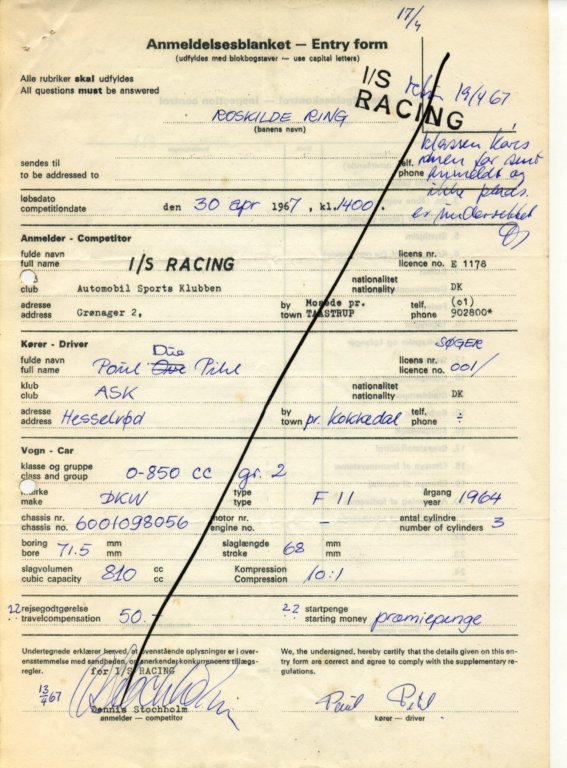 17/4
Anmeldelsesblanket — Entry form
(udfyldes med blokbogstaver — use capital letters)
Alle rubriker skal udfyldes
All questions must be answered
I/S RACING
19/4 67
ROSKILDE RING
(banens navn)
klassen
sendes til
to be addressed to
telf.
phone
for sent
anmeldt og
ikke plads.
er underrettet
løbsdato
competitiondate
den 30 apr 1967, kl. 1400.
Anmelder - Competitor
fulde navn
full name
I/S RACING
licens nr.
licence no. E 1178
club
Automobil Sports Klubben
nationalitet
nationality DK
adresse
address
Grønager 2,
by
town
Mosede pr.
TAASTRUP
telf.
phone
(01)
902800*
Kører - Driver
SØGER
fulde navn
full name
Poul Due Pihl
licens nr.
licence no. 001/
klub
club
ASK
nationalitet
nationality DK
adresse
address
Hesselrød
by
town
pr. Kokkedal
telf.
phone
÷
Vogn - Car
klasse og gruppe
class and group
0-850 cc gr. 2
mærke
make
DKW
type
type
F 11
årgang
year
1964
chassis nr.
chassis no. 6001098056
motor nr.
engine no. —
antal cylindre
number of cylinders 3
boring
bore
71.5 mm
mm
slaglængde
stroke
68 mm
mm
slagvolumen
cubic capacity
810 cc
cc
Kompression
Compression
10:1
?? rejsegodtgørelse
travelcompensation
50.-
?? startpenge
starting money
præmiepenge
Undertegnede erklærer herved, at ovenstående oplysninger er i over-
ensstemmelse med sandheden, og anerkender konkurrencens tillægs-
regler.
for I/S RACING
We, the undersigned, hereby certify that the details given on this en-
try form are correct and agree to comply with the supplementary re-
gulations.
13/4 67
Dennis Stochholm
anmelder — competitor
Poul Pihl
kører — driver